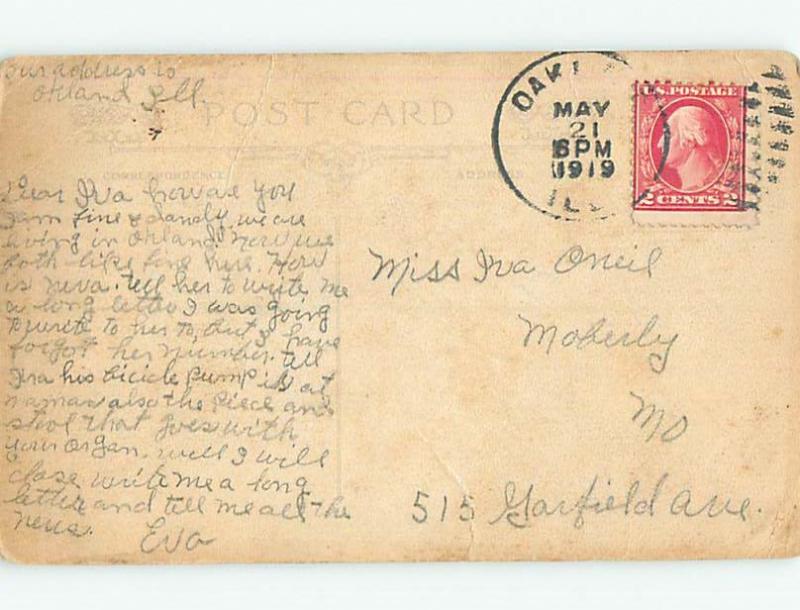 our address is
Orland Ill
POST CARD
CORRESPONDENCE
ADDRESS
OAKL
MAY
21
6 PM
1919
ILL
U.S. POSTAGE
2 CENTS 2
Dear Iva how are you
I am fine & dandy we are
living in Orland. Now we
both like fine here. How
is neva. tell her to write me
a long letter I was going
to write to her to, but I have
forgot her number. tell
Ira his bicicle pump is at
mamas also the piece and
stool that goes with
your organ. well I will
close write me a long
letter and tell me all the
news.
Eva
Miss Iva Oneil
Moberly
Mo
515 Garfield Ave.